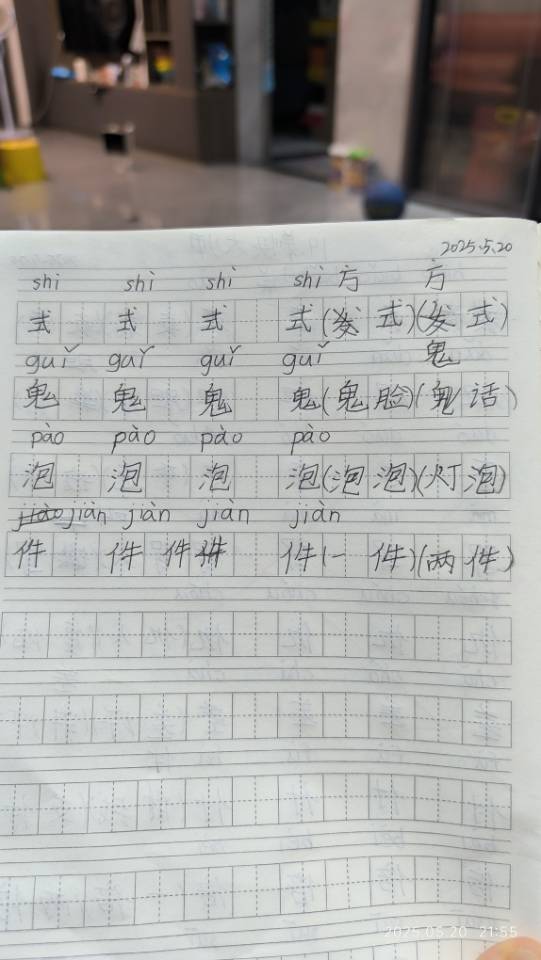 2025.5.20
shì shì shì shì 方 方
式 式 式 式(发 式)(发 式)
guǐ guǐ guǐ guǐ 鬼
鬼 鬼 鬼 鬼(鬼 脸)(鬼 话)
pào pào pào pào
泡 泡 泡 泡(泡 泡)(灯 泡)
jiàn jiàn jiàn jiàn
件 件 件 件 件(一 件)(两 件)
2025.05.20 21:55